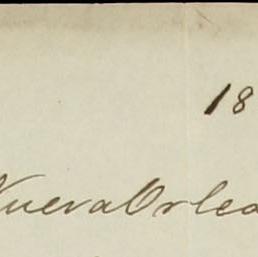 18
Nueva Orlea